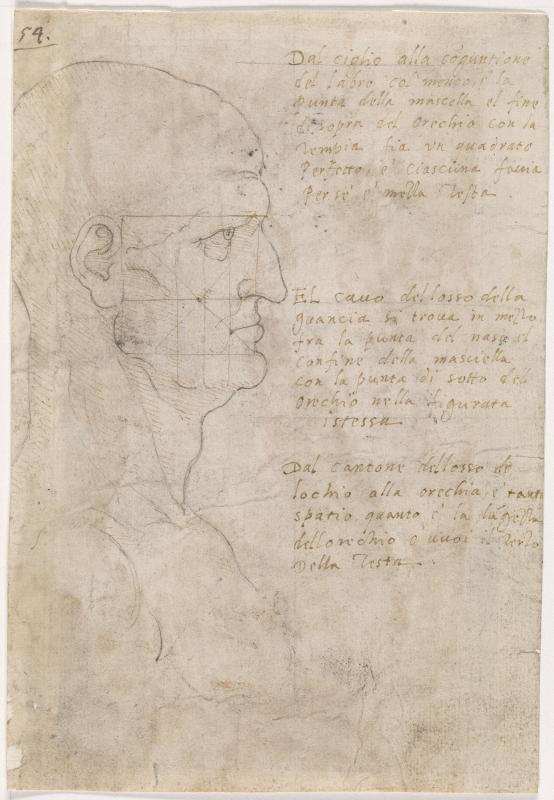 54.
Dal ciglio alla cōguntione
del labro col mento, è la
punta della mascella el fine
di sopra del orechio con la
tempia fia vn quadrato
Perfetto, è ciascuna facia
Per se è mezza Testa.
EL cauo dell osso della
guancia si troua in mezzo
fra la punta del naso el
confine della masciella
con la punta di sotto del
orechio nella figurata
istessa
Dal cantone dell osso de
lochio alla orechia, è tanto
spatio quanto è la
dell orechio o uuoi il Terzo
Della Testa.